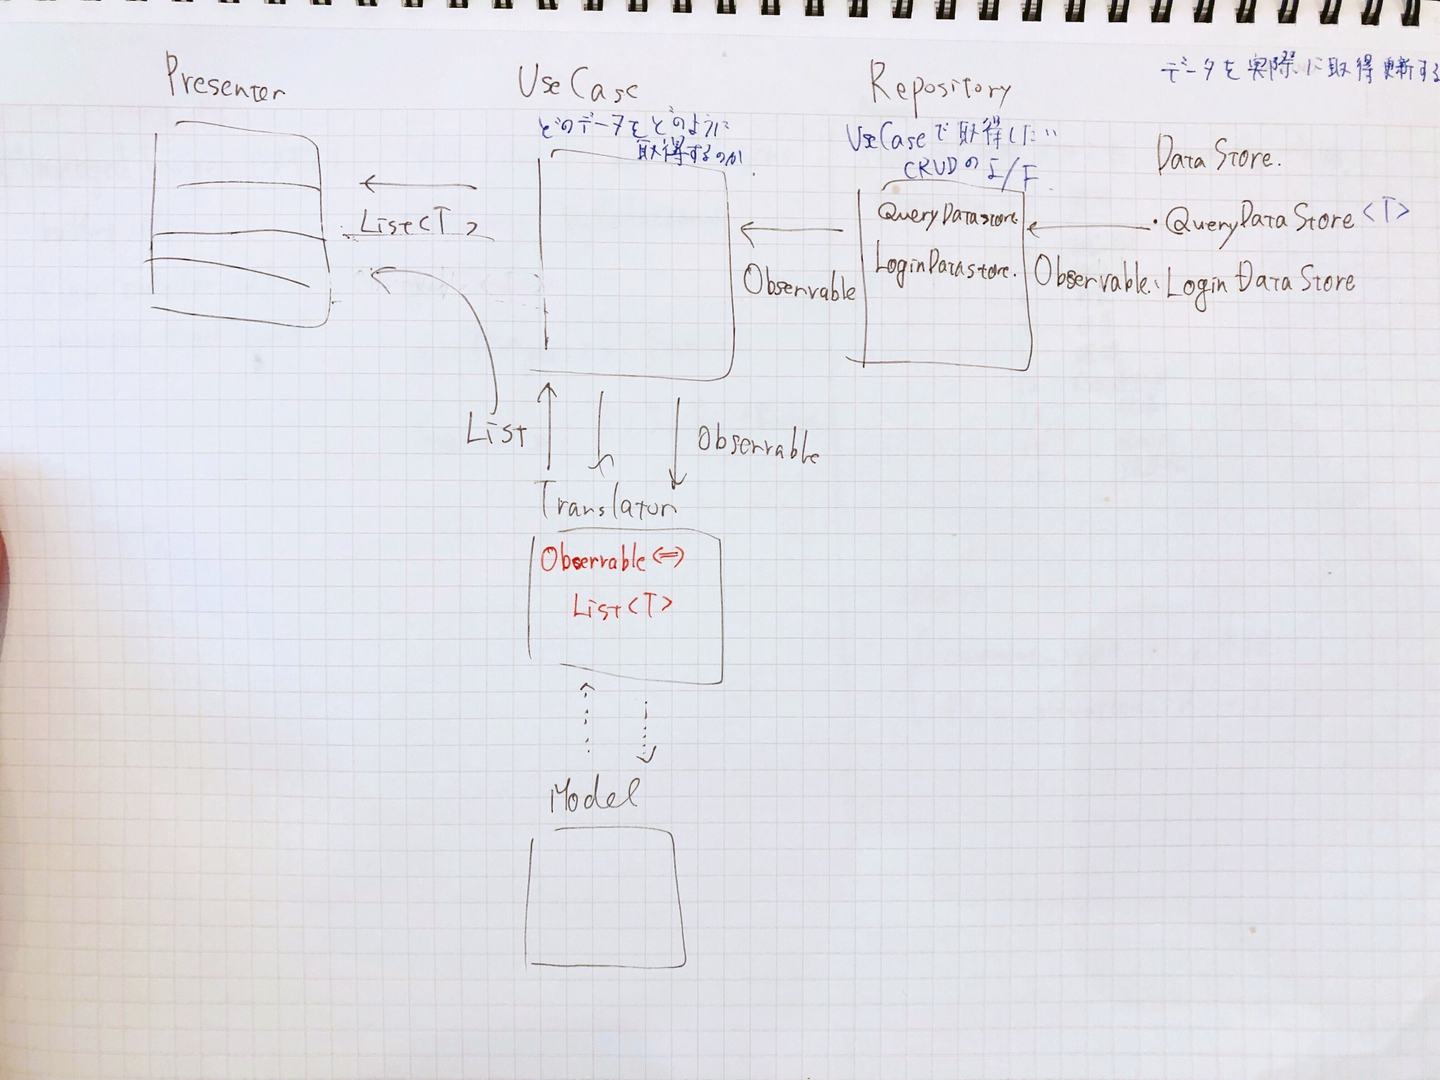 Presenter
UseCase
どのデータをどのように
取得するのか
Repository
UseCaseで取得したい
CRUDのI/F
データを実際に取得更新する
DataStore.
・QueryDataStore<T>
・LoginDataStore
QueryDatastore
LoginDatastore.
List<T>
Observable
Observable
List
Observable
Translator
Observable<=>
List<T>
Model